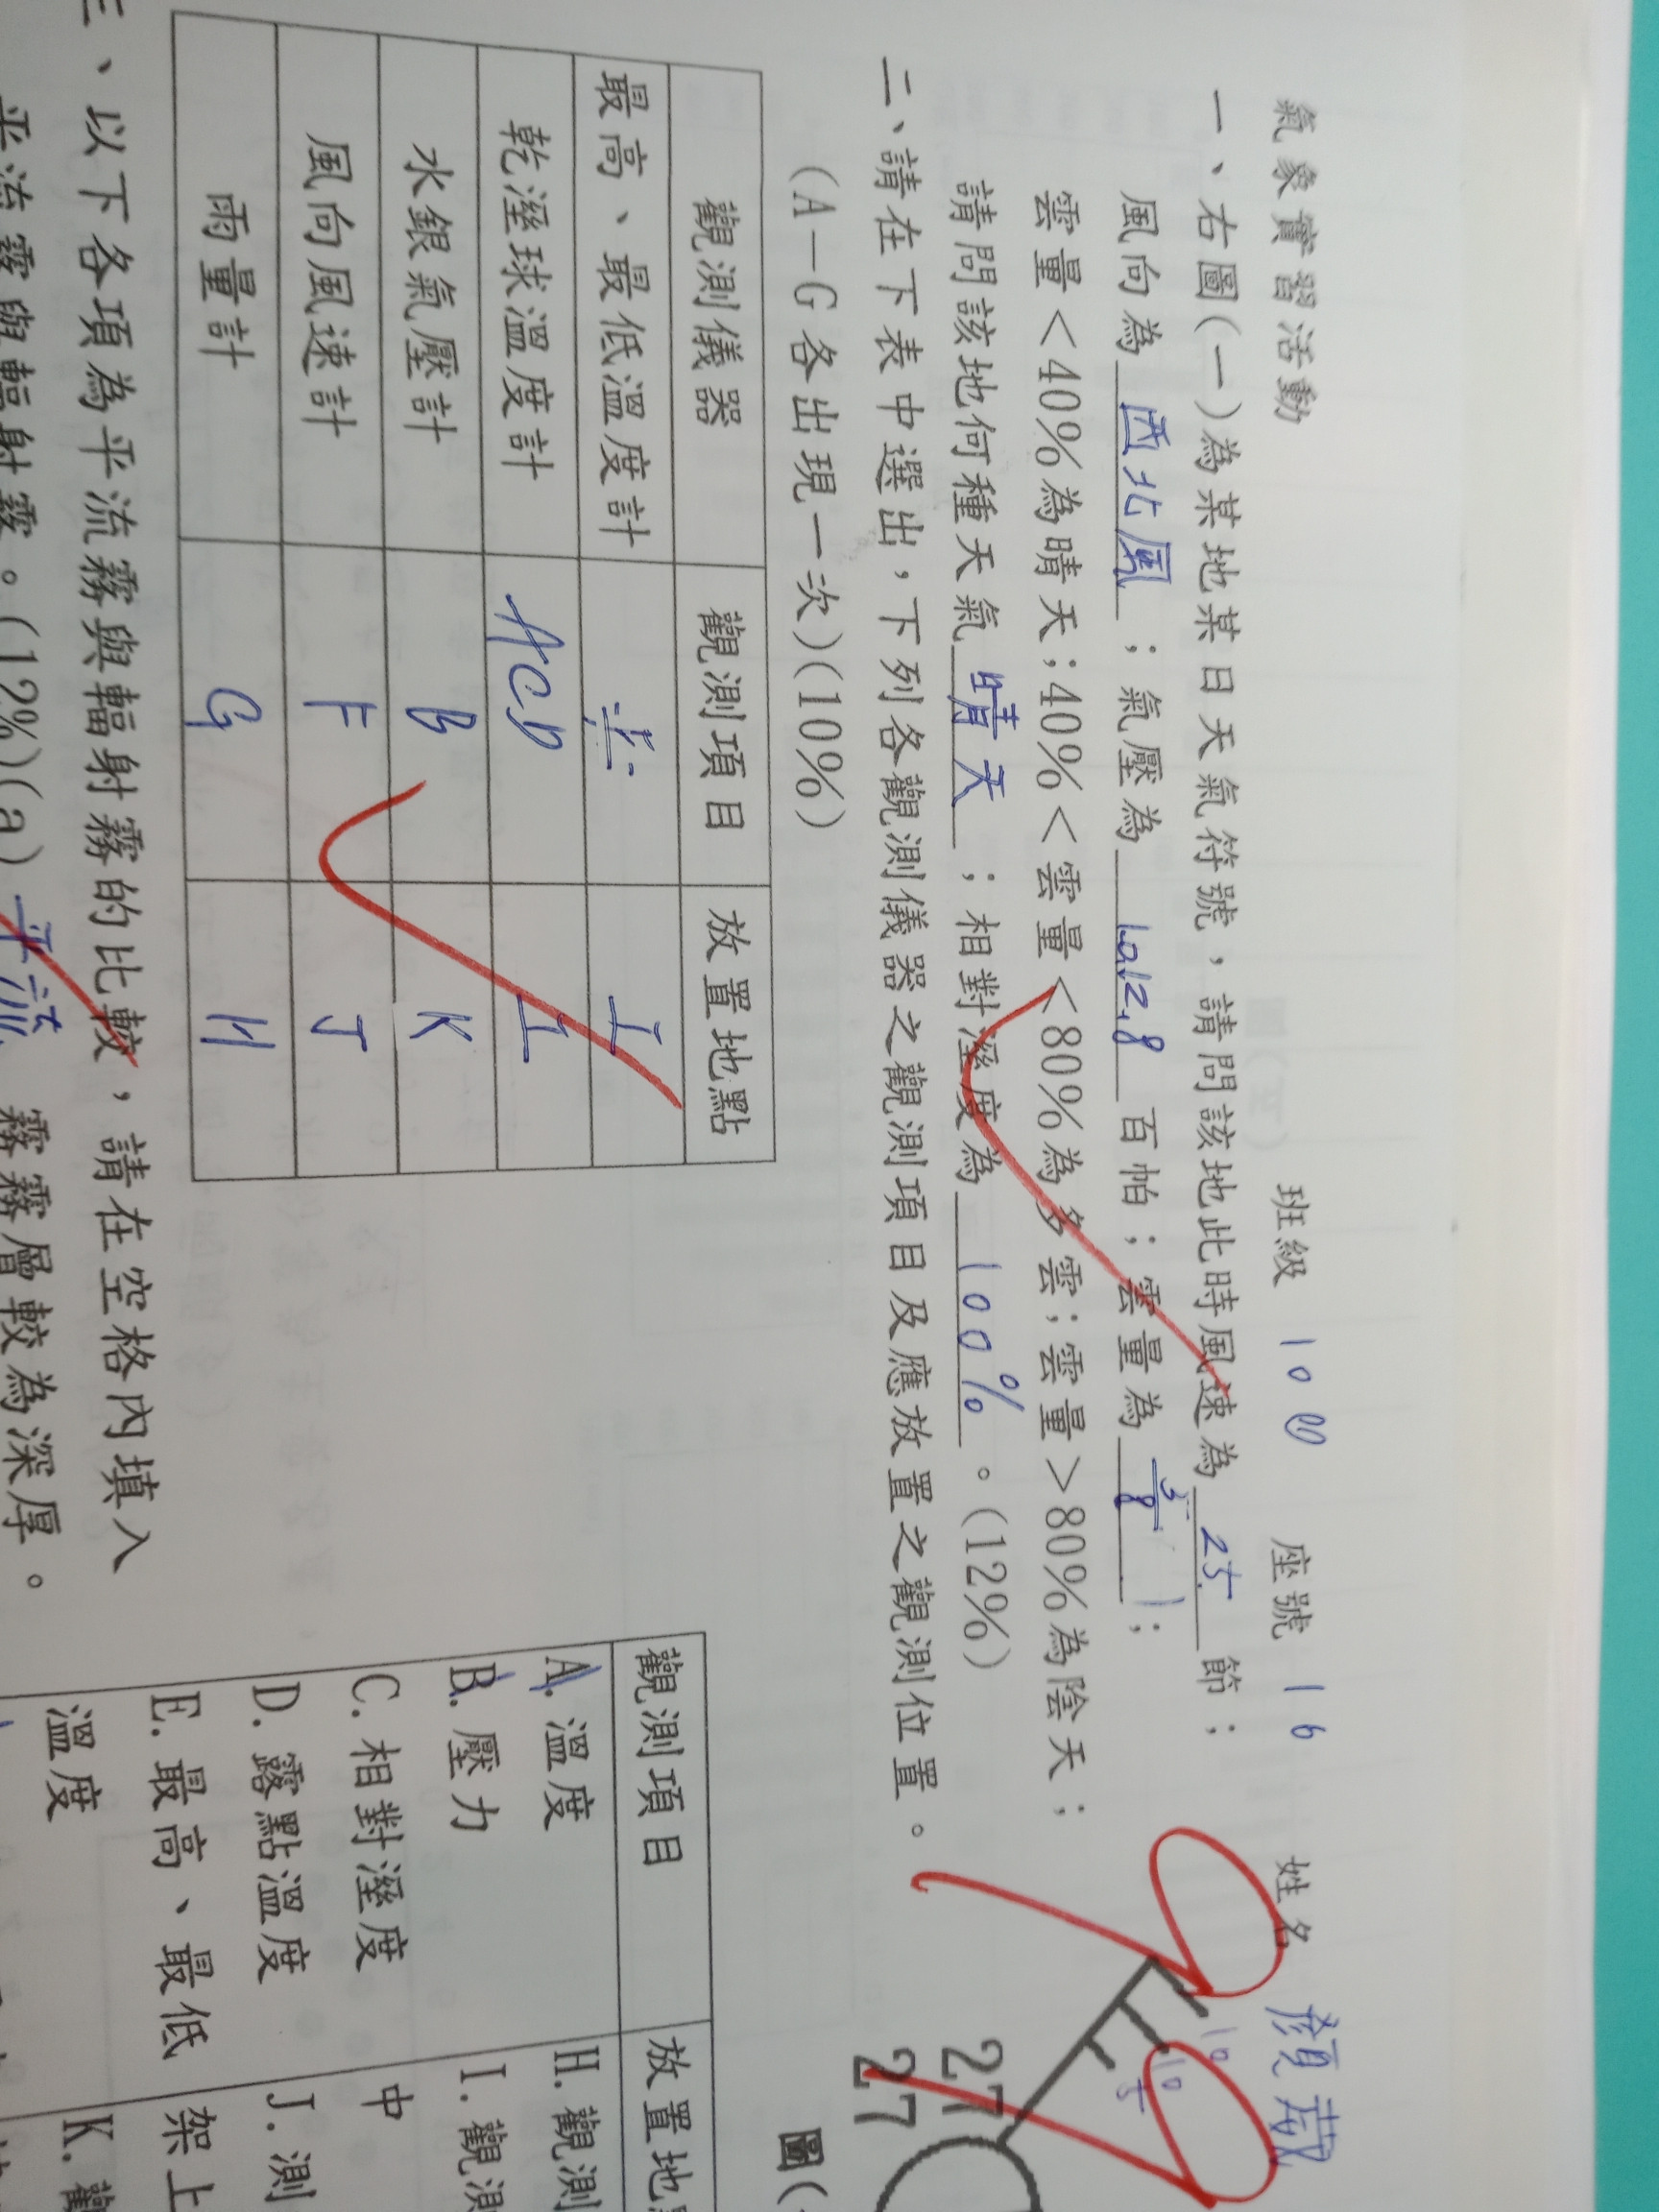 氣象實習活動 班級 10 座號 16 姓名 顏
一、右圖(一)為某地某日天氣符號，請問該地此時風速為 25 節；
風向為 西北風 ；氣壓為 1012.8 百帕；雲量為 3/8 ；
雲量<40%為晴天；40%<雲量<80%為多雲；雲量>80%為陰天；
請問該地何種天氣 晴天 ；相對溼度為 100% 。(12%)
10
10
5
27
27
圖(
二、請在下表中選出，下列各觀測儀器之觀測項目及應放置之觀測位置。
(A—G各出現一次)(10%)
觀測儀器 觀測項目 放置地點
最高、最低溫度計 E I
乾溼球溫度計 ACD I
水銀氣壓計 B K
風向風速計 F J
雨量計 G H
觀測項目 放置地
A.溫度
B.壓力
C.相對溼度
D.露點溫度
E.最高、最低
溫度
H.觀測
I.觀測
中
J.測
架上
K.觀
三、以下各項為平流霧與輻射霧的比較，請在空格內填入
平流霧與輻射霧。(12%)(a) 平流 霧霧層較為深厚。